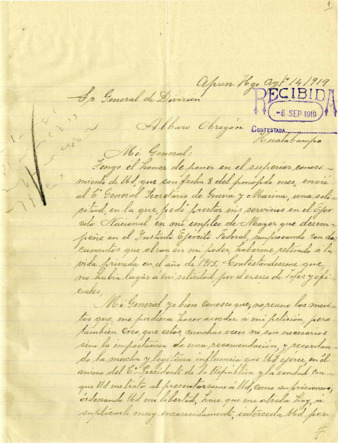 1
Apan Hgo Agto 14/1919
RECIBIDA
-6 SEP 1919
CONTESTADA
Sr General de División
Alvaro Obregón
Mi General:
Tengo el honor de poner en el superior conoci-
miento de Ud, que con fecha 3 del ppdo mes, envié
al Co General Secretario de Guerra y Marina, una soli-
citud, en la que pedí prestar mis servicios en el Ejer-
cito Nacional en mi empleo de Mayor que desem-
peñé en el Ejercito Federal, comprobando con do-
cumentos que obran en mi poder, haberme retirado a la
vida privada en el año de 1915. Contestandome que
no había lugar á mi solicitud por el exceso de Jefes y ofi-
ciales.
Mi General yo bien conosco que, no
que me pudiera hacer acceder á mi petición, pero
tambien creo que estos muchas veces no son necesarios
sino la importancia de una recomendación, y recordan-
do la mucha y legitima influencia que Ud ejerce en el
animo del Co Presidente de la República y la bondad con
que Ud me trató al presentarseme á Ud, como su prisionero,
ordenando Ud mi libertad, hace que me atreva hoy, á
suplicarle muy encarecidamente, interceda Ud por